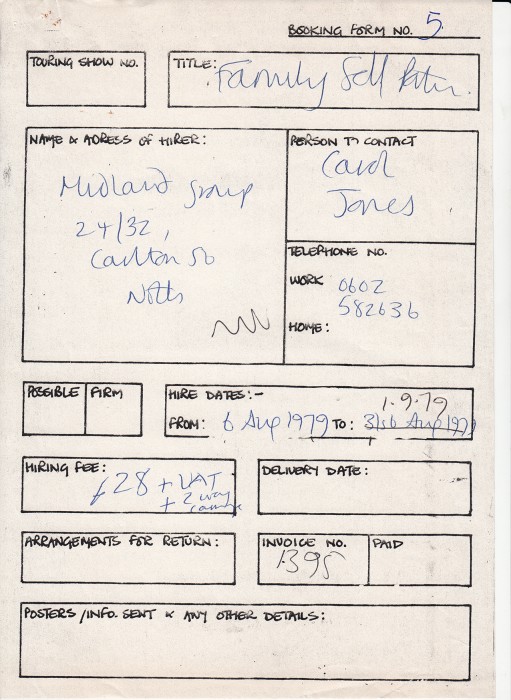 BOOKING FORM NO. 5
TOURING SHOW NO.
TITLE: Family Self
NAME & ADRESS OF HIRER:
Midland Group
24/32,
Carlton St
Notts
PERSON TO CONTACT
Carol
Jones
TELEPHONE NO.
WORK 0602
582636
HOME:
POSSIBLE
FIRM
HIRE DATES:-
1.9.79
FROM: 6 Aug 1979 TO: 31st Aug 1979
HIRING FEE:
£28 + VAT
+ 2 way
DELIVERY DATE:
ARRANGEMENTS FOR RETURN:
INVOICE NO.
1395
PAID
POSTERS / INFO. SENT & ANY OTHER DETAILS: